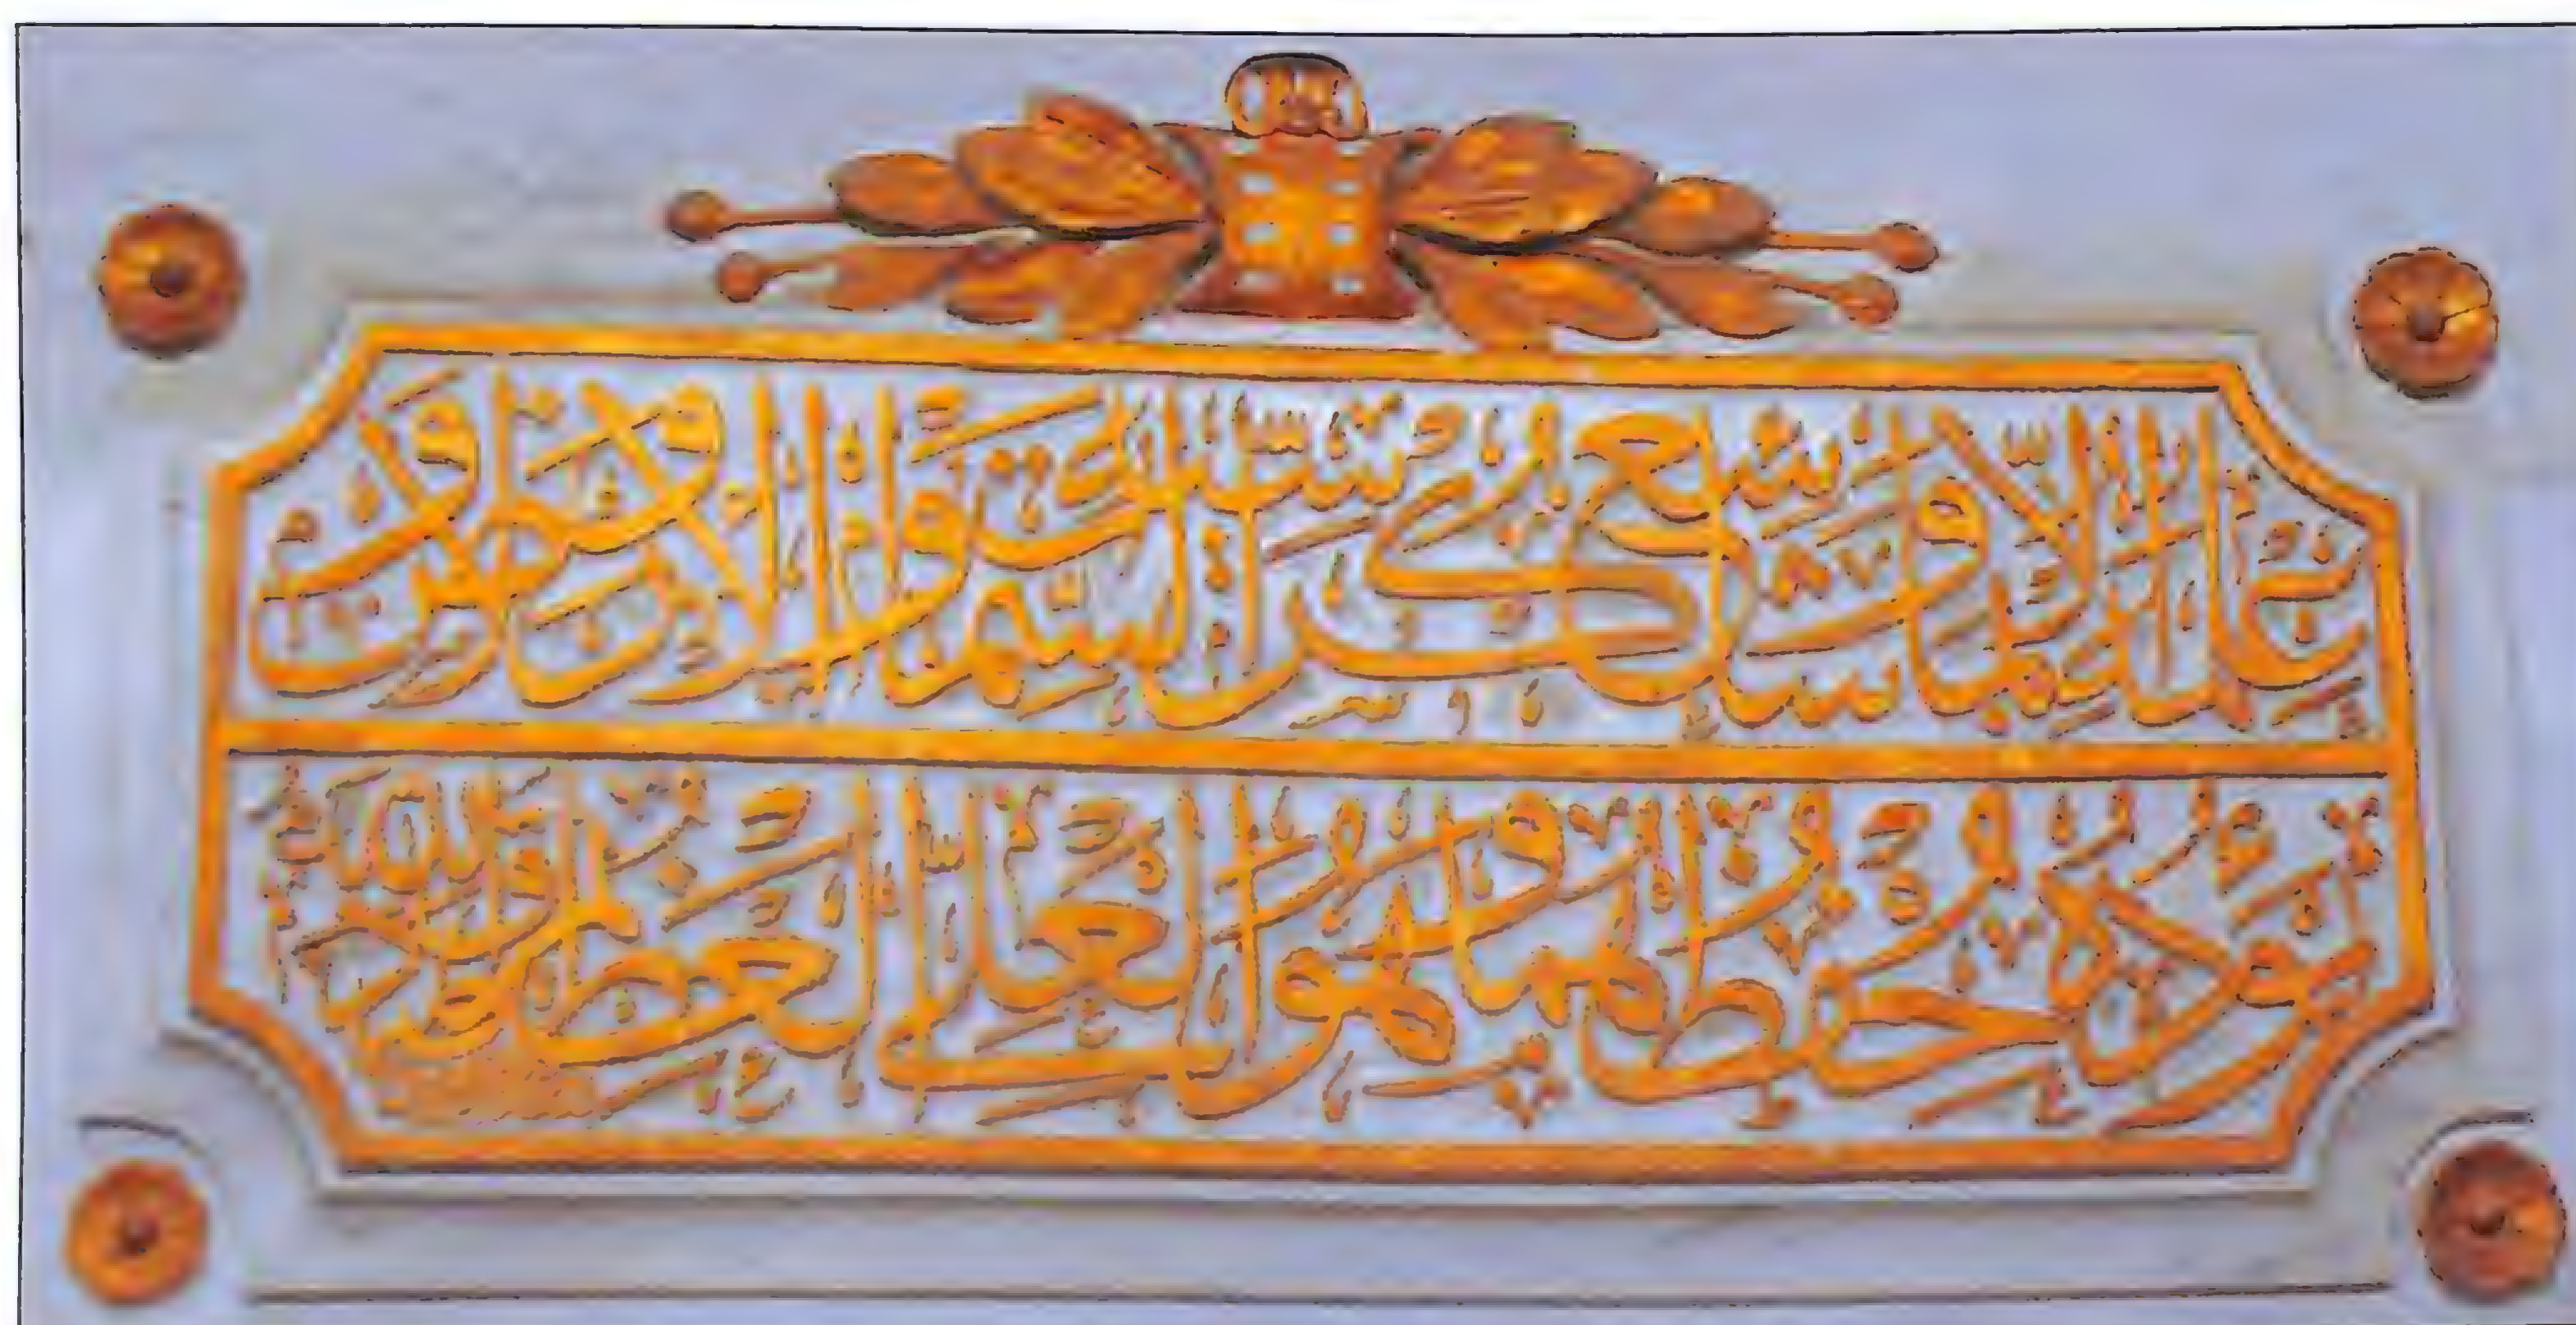 علمه إلا بما شاء وسع كرسيه السموات والأرض ولا
يؤده حفظهما وهو العلي العظيم